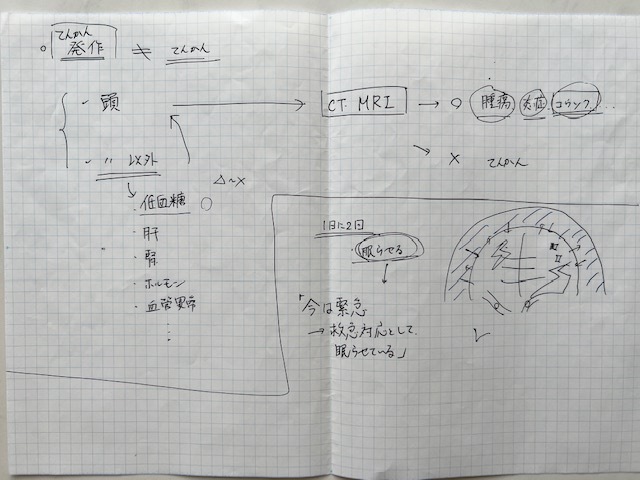 てんかん
発作 ≠ てんかん
頭 → CT. MRI → ○ 腫瘍 炎症
〃 以外
→ × てんかん
△〜×
・低血糖 ○
・肝
・腎
・ホルモン
・血管異常
1日に2回
・眠らせる
「今は緊急
→ 救急対応として
眠らせている」